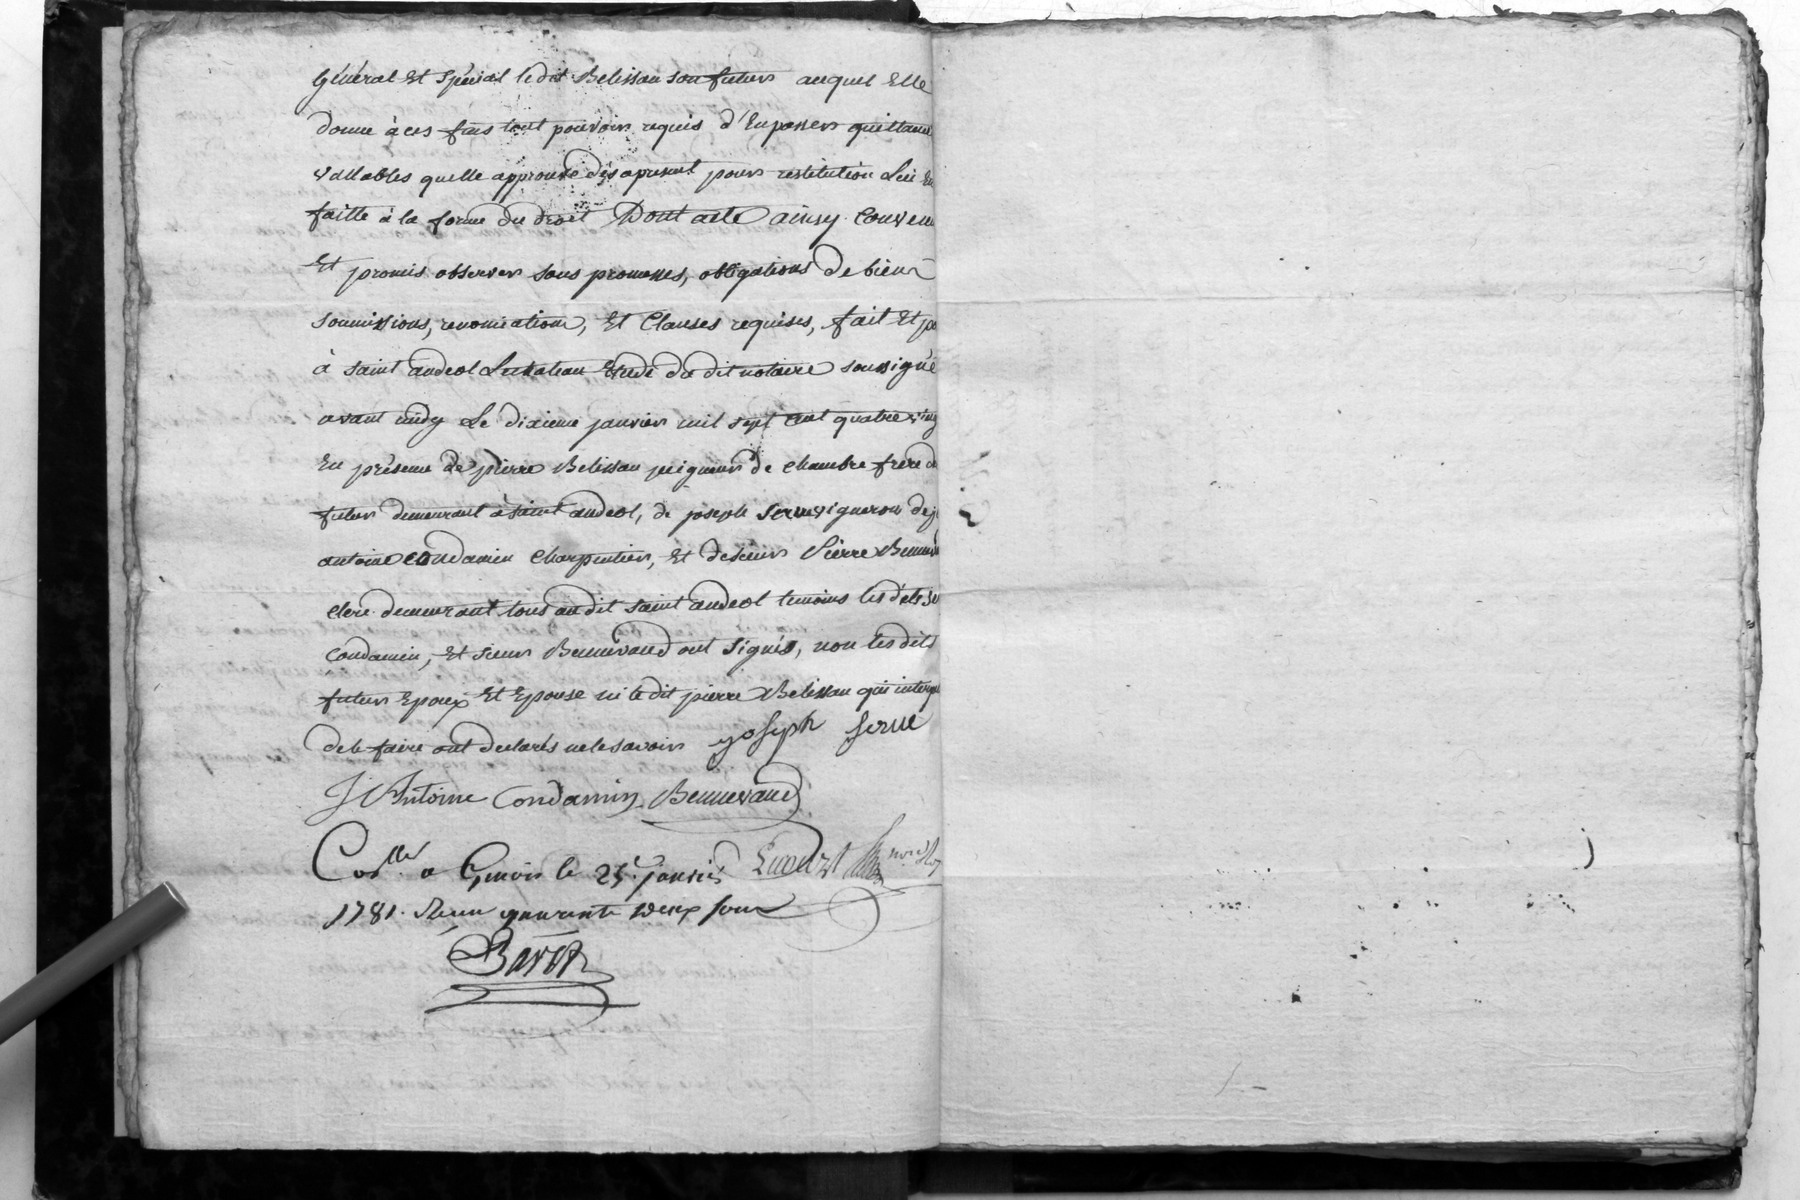 général Et spécial ledit Belissan son futur auquel Elle
donne à ces fins tout pouvoir requis d'En passer quittance
vallables quelle approuve dès apresent pour restitution Lui En
faitte à la forme du droit Dont acte ainsy convenu
Et promis observer sous promesses, obligations de biens
soumissions, renonciations, Et Clauses requises, fait Et
à saint andeol Etude du dit notaire soussigné
avant midy Le dixieme janvier mil sept cent quatre vingt
En présence de pierre Belissan peigneur de chambre frere d
futur demeurant à saint andeol, de joseph Serve vigneron de
antoine Condamin Charpentier, Et de sieur Pierre Bennevaud
clerc demeurant tous au dit saint andeol temoins les dits Se
Condamin, Et sieur Bennevaud ont signés, non les dits
futurs Epoux Et Epouse ni le dit pierre Belissan qui interp
de le faire ont declarés ne le savoir joseph serve
J Antoine Condamin Bennevaud
Coollé a Givors le 25 janvier
1781. Reçu quarante deux sous